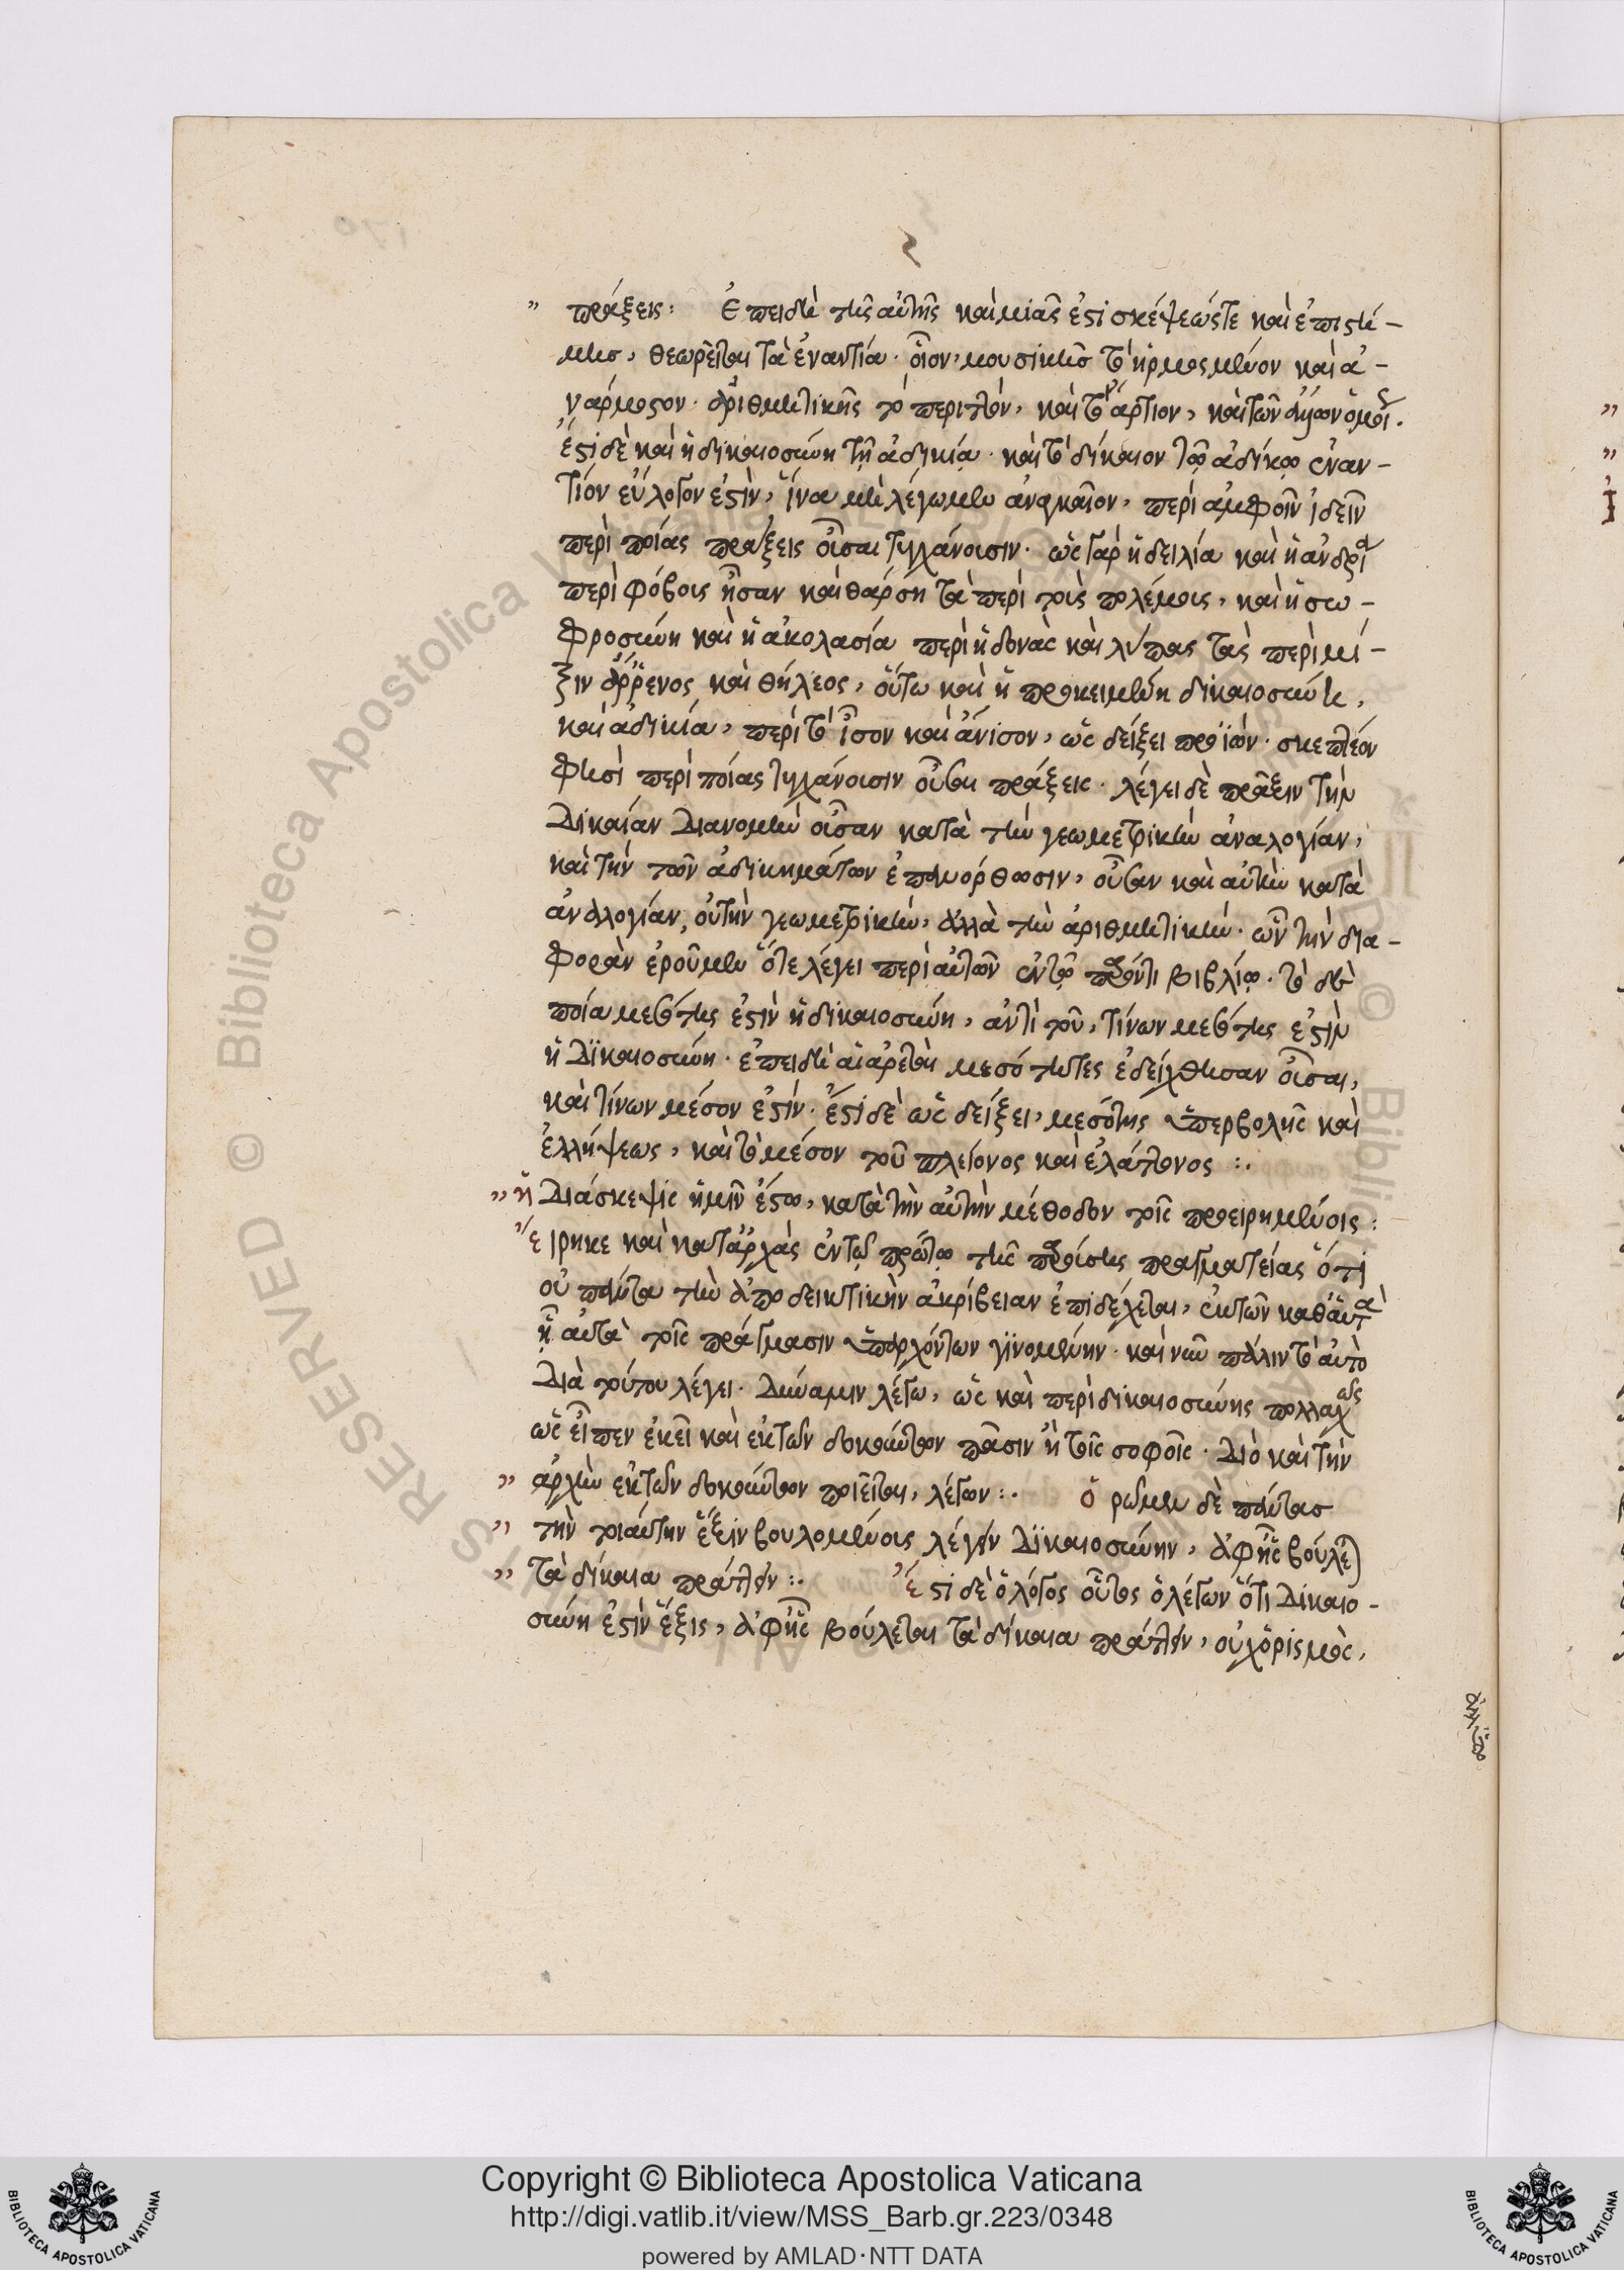 πράξεις: Ἐπειδὴ τῆς αὐτῆς καὶ μιᾶς ἐστὶ σκέψεώς τε καὶ ἐπιστή-
μης, θεωρεῖται τὰ ἐναντία. οἷον, μουσικῆς τὸ ἡρμοσμένον καὶ ἀ-
νάρμοστον. ἀριθμητικῆς τὸ περιττὸν, καὶ τὸ ἄρτιον, καὶ τῶν ἄλλων ὁμοί.
ἔστι δὲ καὶ ἡ δικαιοσύνη τῇ ἀδικίᾳ. καὶ τὸ δίκαιον τῷ ἀδίκῳ ἐναν-
τίον εὔλογον ἐστὶν, ἵνα μὴ λέγωμεν ἀναγκαῖον, περὶ ἀμφοῖν ἰδεῖν
περὶ ποίας πράξεις οὖσαι τυγχάνουσιν. ὡς γὰρ ἡ δειλία καὶ ἡ ἀνδρία
περὶ φόβους ἦσαν καὶ θάρση τὰ περὶ τοὺς πολέμους, καὶ ἡ σω-
φροσύνη καὶ ἡ ἀκολασία περὶ ἡδονὰς καὶ λύπας τὰς περὶ μί-
ξιν ἄῤῥενος καὶ θήλεος, οὕτω καὶ ἡ προκειμένη δικαιοσύνη,
καὶ ἀδικία, περὶ τὸ ἶσον καὶ ἄνισον, ὡς δείξει προϊών. σκεπτέον
φησὶ περὶ ποίας τυγχάνουσιν οὖσαι πράξεις. λέγει δὲ πρᾶξιν τὴν
δικαίαν διανομὴν οὖσαν κατὰ τὴν γεωμετρικὴν ἀναλογίαν,
καὶ τὴν τῶν ἀδικημάτων ἐπανόρθωσιν, οὖσαν καὶ αὐτὴν κατὰ
ἀναλογίαν, οὐ τὴν γεωμετρικὴν, ἀλλὰ τὴν ἀριθμητικήν. ὧν τὴν δια-
φορὰν ἐροῦμεν ὅτε λέγει περὶ αὐτῶν ἐν τῷ παρόντι βιβλίῳ. τὸ δὲ
ποία μεσότης ἐστὶν ἡ δικαιοσύνη, ἀντὶ τοῦ, τίνων μεσότης ἐστὶν
ἡ δικαιοσύνη. ἐπειδὴ αἱ ἀρεταὶ μεσότητες ἐδείχθησαν οὖσαι,
καὶ τίνων μέσον ἐστίν. ἔστι δὲ ὡς δείξει, μεσότης ὑπερβολῆς καὶ
ἐλλήψεως, καὶ τὸ μέσον τοῦ πλείονος καὶ ἐλάττονος :.
ἡ διάσκεψις ἡμῖν ἔστω, κατὰ τὴν αὐτὴν μέθοδον τοῖς προειρημένοις :
Εἴρηκε καὶ καταρχὰς ἐν τῷ πρώτῳ τῆς παρούσης πραγματείας ὅτι
οὐ πάντα τὴν ἀποδεικτικὴν ἀκρίβειαν ἐπιδέχεται, ἐκ τῶν καθαὑτὰ
ᾗ αὐτὰ τοῖς πράγμασιν ὑπαρχόντων γινομένην. καὶ νῦν πάλιν τὸ αὐτὸ
διὰ τούτου λέγει. δύναμιν λέγω, ὡς καὶ περὶ δικαιοσύνης πολλαχῶς
ὡς εἶπεν ἐκεῖ καὶ ἐκ τῶν δοκούντων πᾶσιν ἢ τοῖς σοφοῖς. διὸ καὶ τὴν
ἀρχὴν ἐκ τῶν δοκούντων ποιεῖται, λέγων :. ὁρῶμεν δὲ πάντας
τὴν τοιαύτην ἕξιν βουλομένους λέγειν δικαιοσύνην, ἀφ ἧς βούλε
τὰ δίκαια πράττειν :. ἔστι δὲ ὁ λόγος οὗτος ὁ λέγων ὅτι δικαιο-
σύνη ἐστὶν ἕξις, ἀφ ἧς βούλεται τὰ δίκαια πράττειν, οὐχ ὁρισμὸς,
Copyright © Biblioteca Apostolica Vaticana
http://digi.vatlib.it/view/MSS_Barb.gr.223/0348
powered by AMLAD·NTT DATA